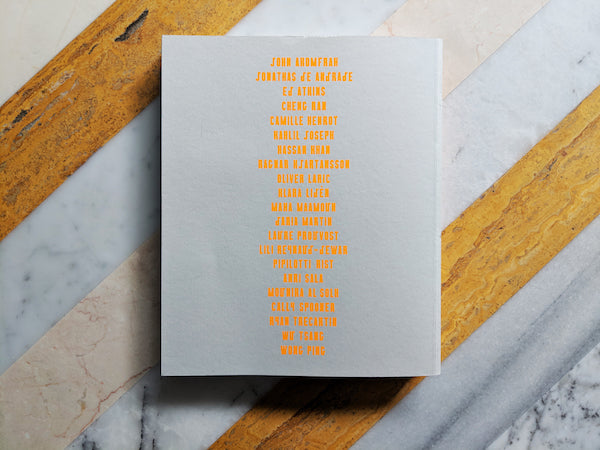 JOHN AKOMFRAH
JONATHAS DE ANDRADE
ED ATKINS
CHENG RAN
CAMILLE HENROT
KAHLIL JOSEPH
HASSAN KHAN
RAGNAR KJARTANSSON
OLIVER LARIC
KLARA LIDEN
MAHA MAAMOUN
DARIA MARTIN
LAURE PROUVOST
LILI REYNAUD-DEWAR
PIPILOTTI RIST
ANRI SALA
MOUNIRA AL SOLH
CALLY SPOONER
RYAN TRECARTIN
WU TSANG
WONG PING